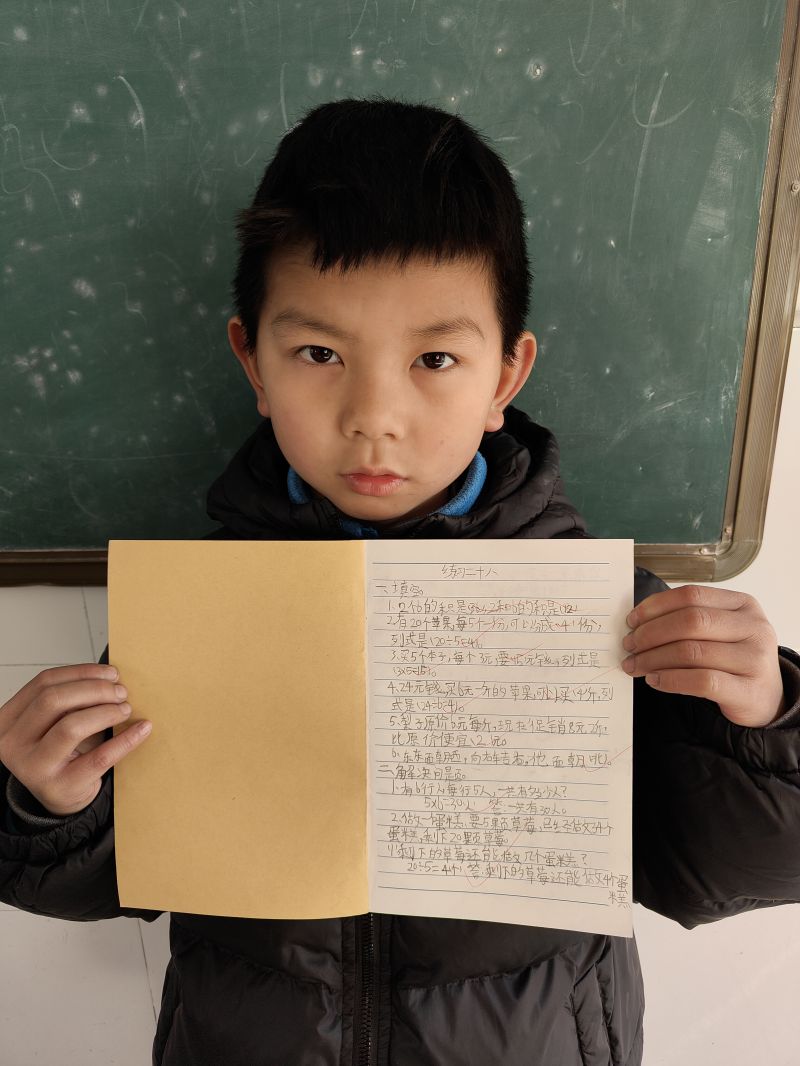 练习二十八
一、填空。
1. 2个6的积是(12), 2和6的积是(12)
2. 有20个苹果,每5个一份,可以分成(4)份,
列式是(20÷5=4)。
3. 买5个本子,每个3元,要(15)元钱,列式是
(3×5=15)。
4. 24元钱买6元一斤的苹果,可以买(4)斤,列
式是(24÷6=4)。
5. 梨子原价6元每斤,现在促销8元2斤,
比原价便宜(2)元。
6. 东东面朝西,向右转 他面朝(北)。
二、解决问题。
1. 有6行人,每行5人,一共有多少人?
5×6=30(人) 答:一共有30人。
2. 做一个蛋糕要5颗草莓,已经做好4个
蛋糕,剩下20颗草莓。
(1)剩下的草莓还能做几个蛋糕?
20÷5=4(个) 答:剩下的草莓还能做4个蛋
糕